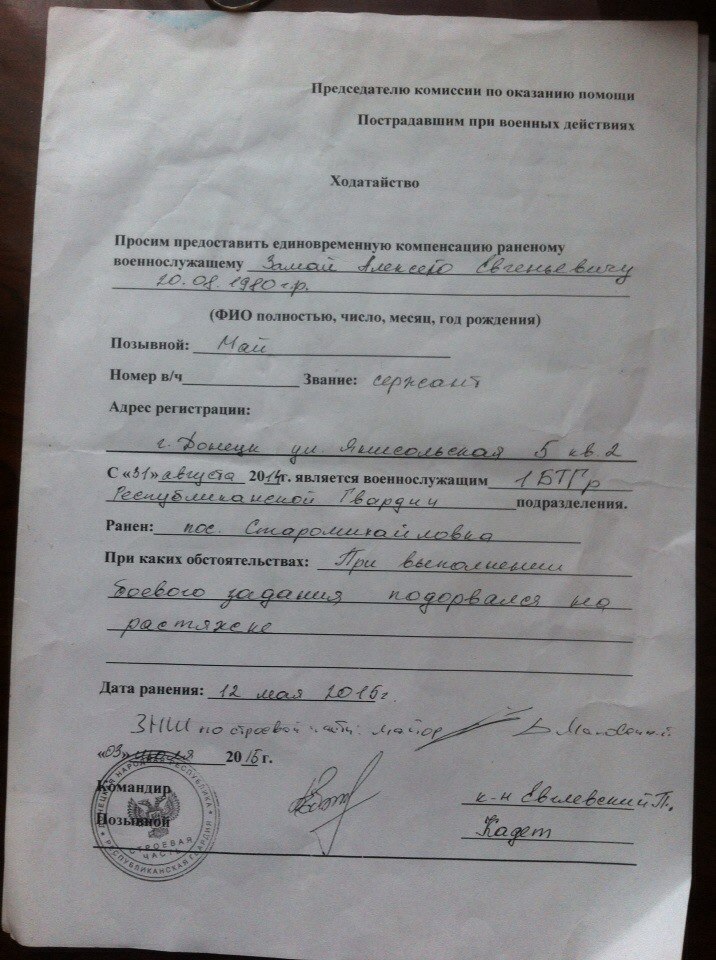 Председателю комиссии по оказанию помощи
Пострадавшим при военных действиях
Ходатайство
Просим предоставить единовременную компенсацию раненому
военнослужащему Замай Алексею Евгеньевичу
20.08.1980 г.р.
(ФИО полностью, число, месяц, год рождения)
Позывной: Май
Номер в/ч Звание: сержант
Адрес регистрации:
г. Донецк ул. 5 кв. 2
С «31» августа 2014г. является военнослужащим 1 БТГр
Республиканской Гвардии подразделения.
Ранен: пос. Старомихайловка
При каких обстоятельствах: При выполнении
боевого задания подорвался на
растяжке
Дата ранения: 12 мая 2015г.
ЗНШ по строевой части майор
«03» июля 2015 г.
Командир к-н
Позывной Кадет
ДОНЕЦКАЯ НАРОДНАЯ РЕСПУБЛИКА
СТРОЕВАЯ
ЧАСТЬ
РЕСПУБЛИКАНСКАЯ ГВАРДИЯ